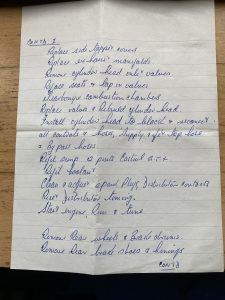 CONTD 1
Replace side tappet covers
Replace exhaust manifolds
Remove cylinder head valves
Reface seats & lap in valves
Decarbonise combustion chambers.
Replace valves & Rebuild cylinder head.
Install cylinder head to block & reconnect
all controls & hoses, supply & fit top hose
& bypass hoses
Refit pump
Refit
Clean & adjust Spark Plugs, Distributor contacts
Reset distributor timing.
Start engine, Run & tune
Remove Rear wheels & Brake drums.
Remove Rear brake shoes & linings
CONTD